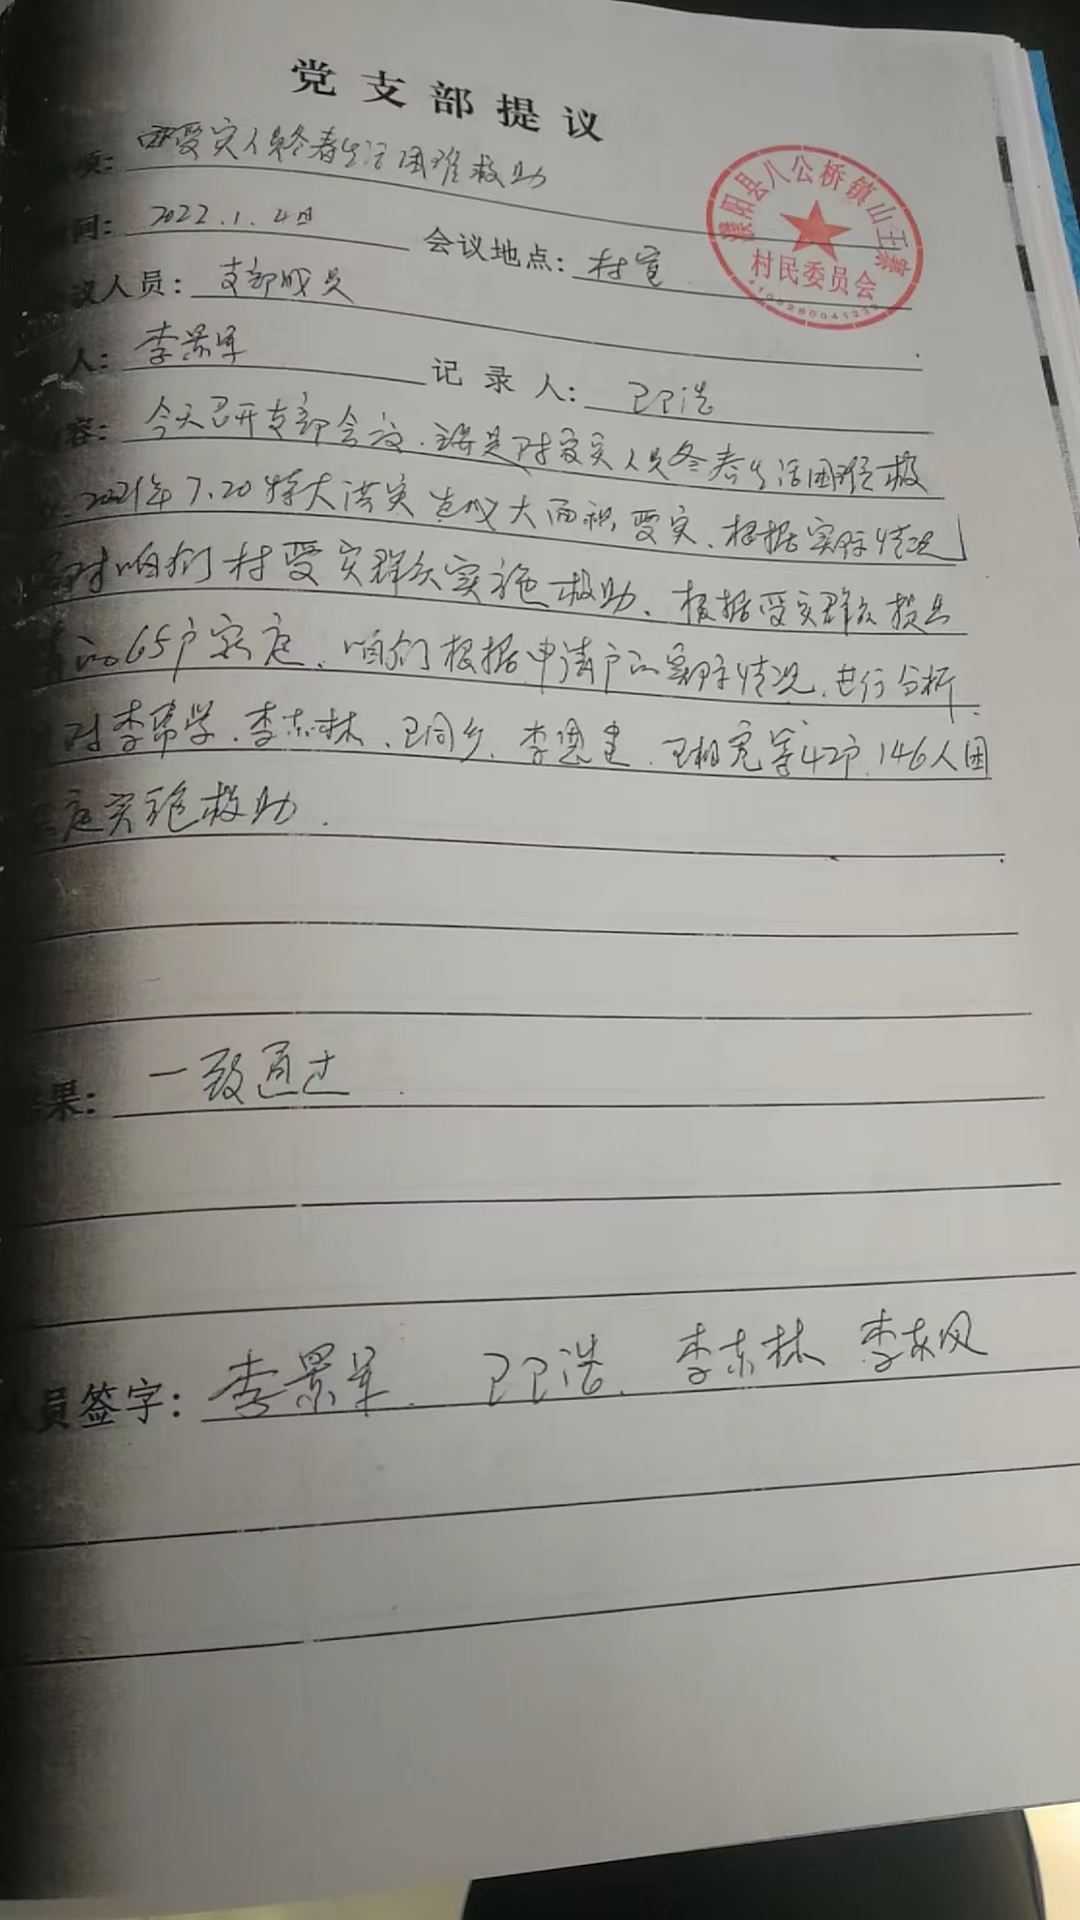 党支部提议
项: 受灾人员冬春生活困难救助
间: 2022.1.4日 会议地点: 村室
濮阳县八公桥镇山王寨
村民委员会
议人员: 支部成员
人: 李景军 记录人: 卫浩
容: 今天召开支部会议.主要是对受灾人员冬春生活困难救
2021年7.20特大洪灾造成大面积受灾、根据实际情况
对咱们村受灾群众实施救助、根据受灾群众提出
65户家庭、咱们根据申请户的实际情况、进行分析、
对李 学、李志林、卫同乡、李恩 、卫 宽等42户、146人困
庭实施救助.
果: 一致通过.
员签字: 李景军. 卫浩. 李东林 李东风